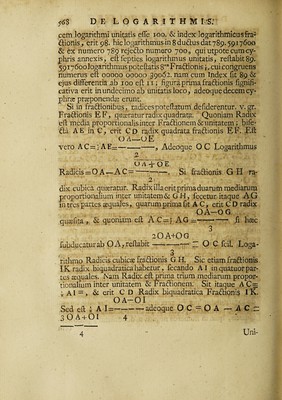 568 DE LOGARITHMIS.
cem logarithmi unitatis esse 100. & index logarithmicus fra-
ctionis, erit 98. hic logarithmus in 8 ductus dat 789. 5917600
& ex numero 789 rejecto numero 700, qui utpote cum cy-
phris annexis, est septies logarithmus unitatis, restabit 89.
5917600 logarithmus potestatis 8væ Fractionis ⅓, cui congruens
numerus est 00000 00000 39062. nam cum Index sit 89 &
ejus differentia ab 100 est 11; figura prima fractionis signifi-
cativa erit in undecimo ab unitatis loco, adeoque decem cy-
phræ præponendæ erunt.
Si in fractionibus, radices potestatum desiderentur. v. gr.
Fractionis E F, quæratur radix quadrata. Quoniam Radix
est media proportionalis inter Fractionem & unitatem; bise-
cta AE in C, erit C D radix quadrata fractionis E F. Est
OA—OE
vero AC=½ AE=————, Adeoque OC Logarithmus
2
OA+OE
Radicis=OA—AC=————. Si fractionis G H ra-
2
dix cubica quæratur. Radix illa erit prima duarum mediarum
proportionalium inter unitatem & G H, secetur itaque AG
in tres partes æquales, quarum prima sit A C, erit C D radix
OA—OG
quæsita, & quoniam est A C=⅓ AG=———— si hæc
3
2OA+OG
subducatur ab OA, restabit ———— = O C scil. Loga-
3
rithmo Radicis cubicæ fractionis G H. Sic etiam fractionis
I K radix biquadratica habetur, secando A I in quatuor par-
tes æquales. Nam Radix est prima trium mediarum propor-
tionalium inter unitatem & Fractionem. Sit itaque AC=
¼ A I =, & erit C D Radix biquadratica Fractionis I K.
OA—OI
Sed est ¼ A I=————adeoque OC = OA — AC =
3 OA+OI 4
————
4 Uni-